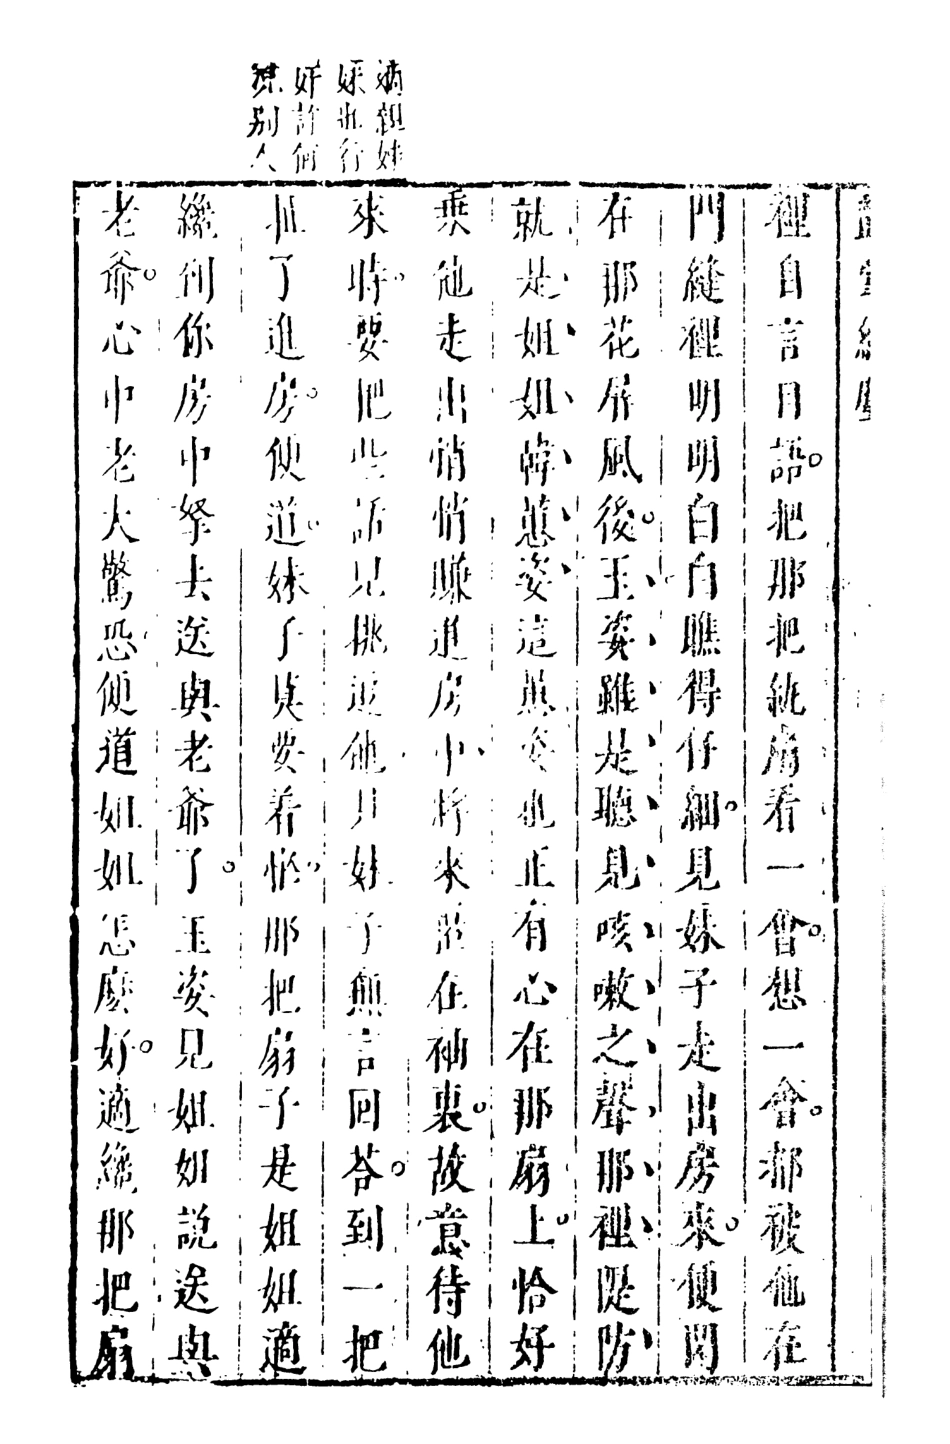 嫡親姊
妹也行
奸詐何
况别人
裡自言自語。把那把紈扇看一會。想一會。都被他在
門縫裡明明白白瞧得仔細。見妹子走出房來。便閃
在那花屏風後。玉姿雖是聽見咳嗽之聲、那裡隄防
就是姐姐韓蕙姿、這蕙姿也正有心在那扇上。恰好
乘他走出悄悄賺進房中、將來藏在袖裏。故意待他
來時。要把些話兒挑逗他、見妹子無言回答。到一把
扯了進房。便道。妹子莫要着惱。那把扇子是姐姐適
纔到你房中拏去送與老爺了。玉姿見姐姐說送與
老爺。心中老大驚恐。便道姐姐怎麽好。適纔那把扇